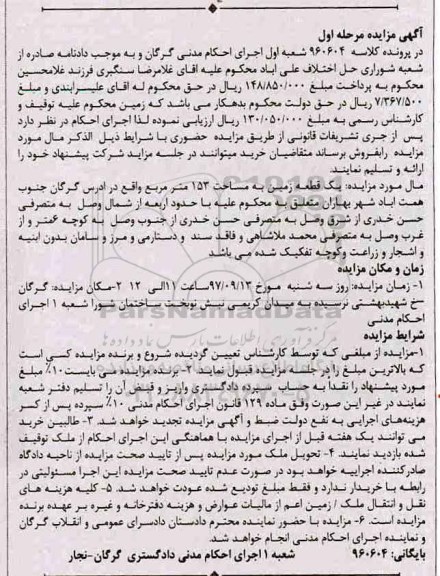 آگهی مزایده مرحله اول
در پرونده کلاسه ۹۶۰۶۰۴ شعبه اول اجرای احکام مدنی گرگان و به موجب دادنامه صادره از
شعبه شورای حل اختلاف علی اباد محکوم علیه اقای غلامرضا سنگبری فرزند غلامحسین
محکوم به پرداخت مبلغ ۱۴۸/۸۵۰/۰۰۰ ریال در حق محکوم له اقای علیسرابندی و مبلغ
۷/۳۶۷/۵۰۰ ریال در حق دولت محکوم بدهکار می باشد که زمین محکوم علیه توقیف و
کارشناس رسمی به مبلغ ۱۳۰/۰۵۰/۰۰۰ ریال ارزیابی نموده لذا اجرای احکام در نظر دارد
پس از جری تشریفات قانونی از طریق مزایده حضوری با شرایط ذیل الذکر مال مورد
مزایده رابفروش برساند متقاضیان خرید میتوانند در جلسه مزایده شرکت پیشنهاد خود را
ارائه و تسلیم نمایند.
مال مورد مزایده: یک قطعه زمین به مساحت ۱۵۳ متر مربع واقع در ادرس گرگان جنوب
همت اباد شهر بهاران متعلق به محکوم علیه با حدود اربعه از شمال وصل به متصرفی
حسن خدری از شرق وصل به متصرفی حسن خدری از جنوب وصل به کوچه ۶متر و از
غرب وصل به متصرفی محمد ملاشاهی و فاقد سند و دستارمی و مرز و سامان بدون ابنیه
و اشجار و زراعت وکوچه تفکیک شده می باشد
زمان و مکان مزایده
۱- زمان مزایده: روز سه شنبه مورخ ۹۷/۰۹/۱۳ساعت ۱۱الی ۱۲ ۲-مکان مزایده: گرگان
–خ شهیدبهشتی نرسیده به میدان کریمی نبش نوبخت ساختمان شورا شعبه ۱ اجرای
احکام مدنی
شرایط مزایده
۱-مزایده از مبلغی که توسط کارشناس تعیین گردیده شروع و برنده مزایده کسی است
که بالاترین مبلغ را در جلسه مزایده قبول نماید ۲- برنده مزایده می بایست ۱۰٪ مبلغ
مورد پیشنهاد را نقداً به حساب سپرده دادگستری واریز و قبض آن را تسلیم دفتر شعبه
نمایند در غیر این صورت وفق ماده ۱۲۹ قانون اجرای احکام مدنی ۱۰٪ سپرده پس از کسر
هزینه‌های اجرایی به نفع دولت ضبط و آگهی مزایده تجدید خواهد شد. ۳- طالبین خرید
می توانند یک هفته قبل از اجرای مزایده با هماهنگی این اجرای احکام از ملک توقیف
شده بازدید نمایند. ۴- تحویل ملک مورد مزایده پس از تایید صحت مزایده از ناحیه دادگاه
صادرکننده اجراییه خواهد بود در صورت عدم تایید صحت مزایده این اجرا مسئولیتی در
رابطه با خریدار ندارد و فقط مبلغ تودیع شده عودت خواهد شد. ۵- کلیه هزینه های
نقل و انتقال ملک / زمین اعم از مالیات عوارض و هزینه دفترخانه و غیره بر عهده برنده
مزایده است. ۶- مزایده با حضور نماینده محترم دادستان دادسرای عمومی و انقلاب گرگان
و نماینده اجرای احکام مدنی انجام خواهد شد.
بایگانی: ۹۶۰۶۰۴ شعبه ۱ اجرای احکام مدنی دادگستری گرگان-نجار
ParsNamadData